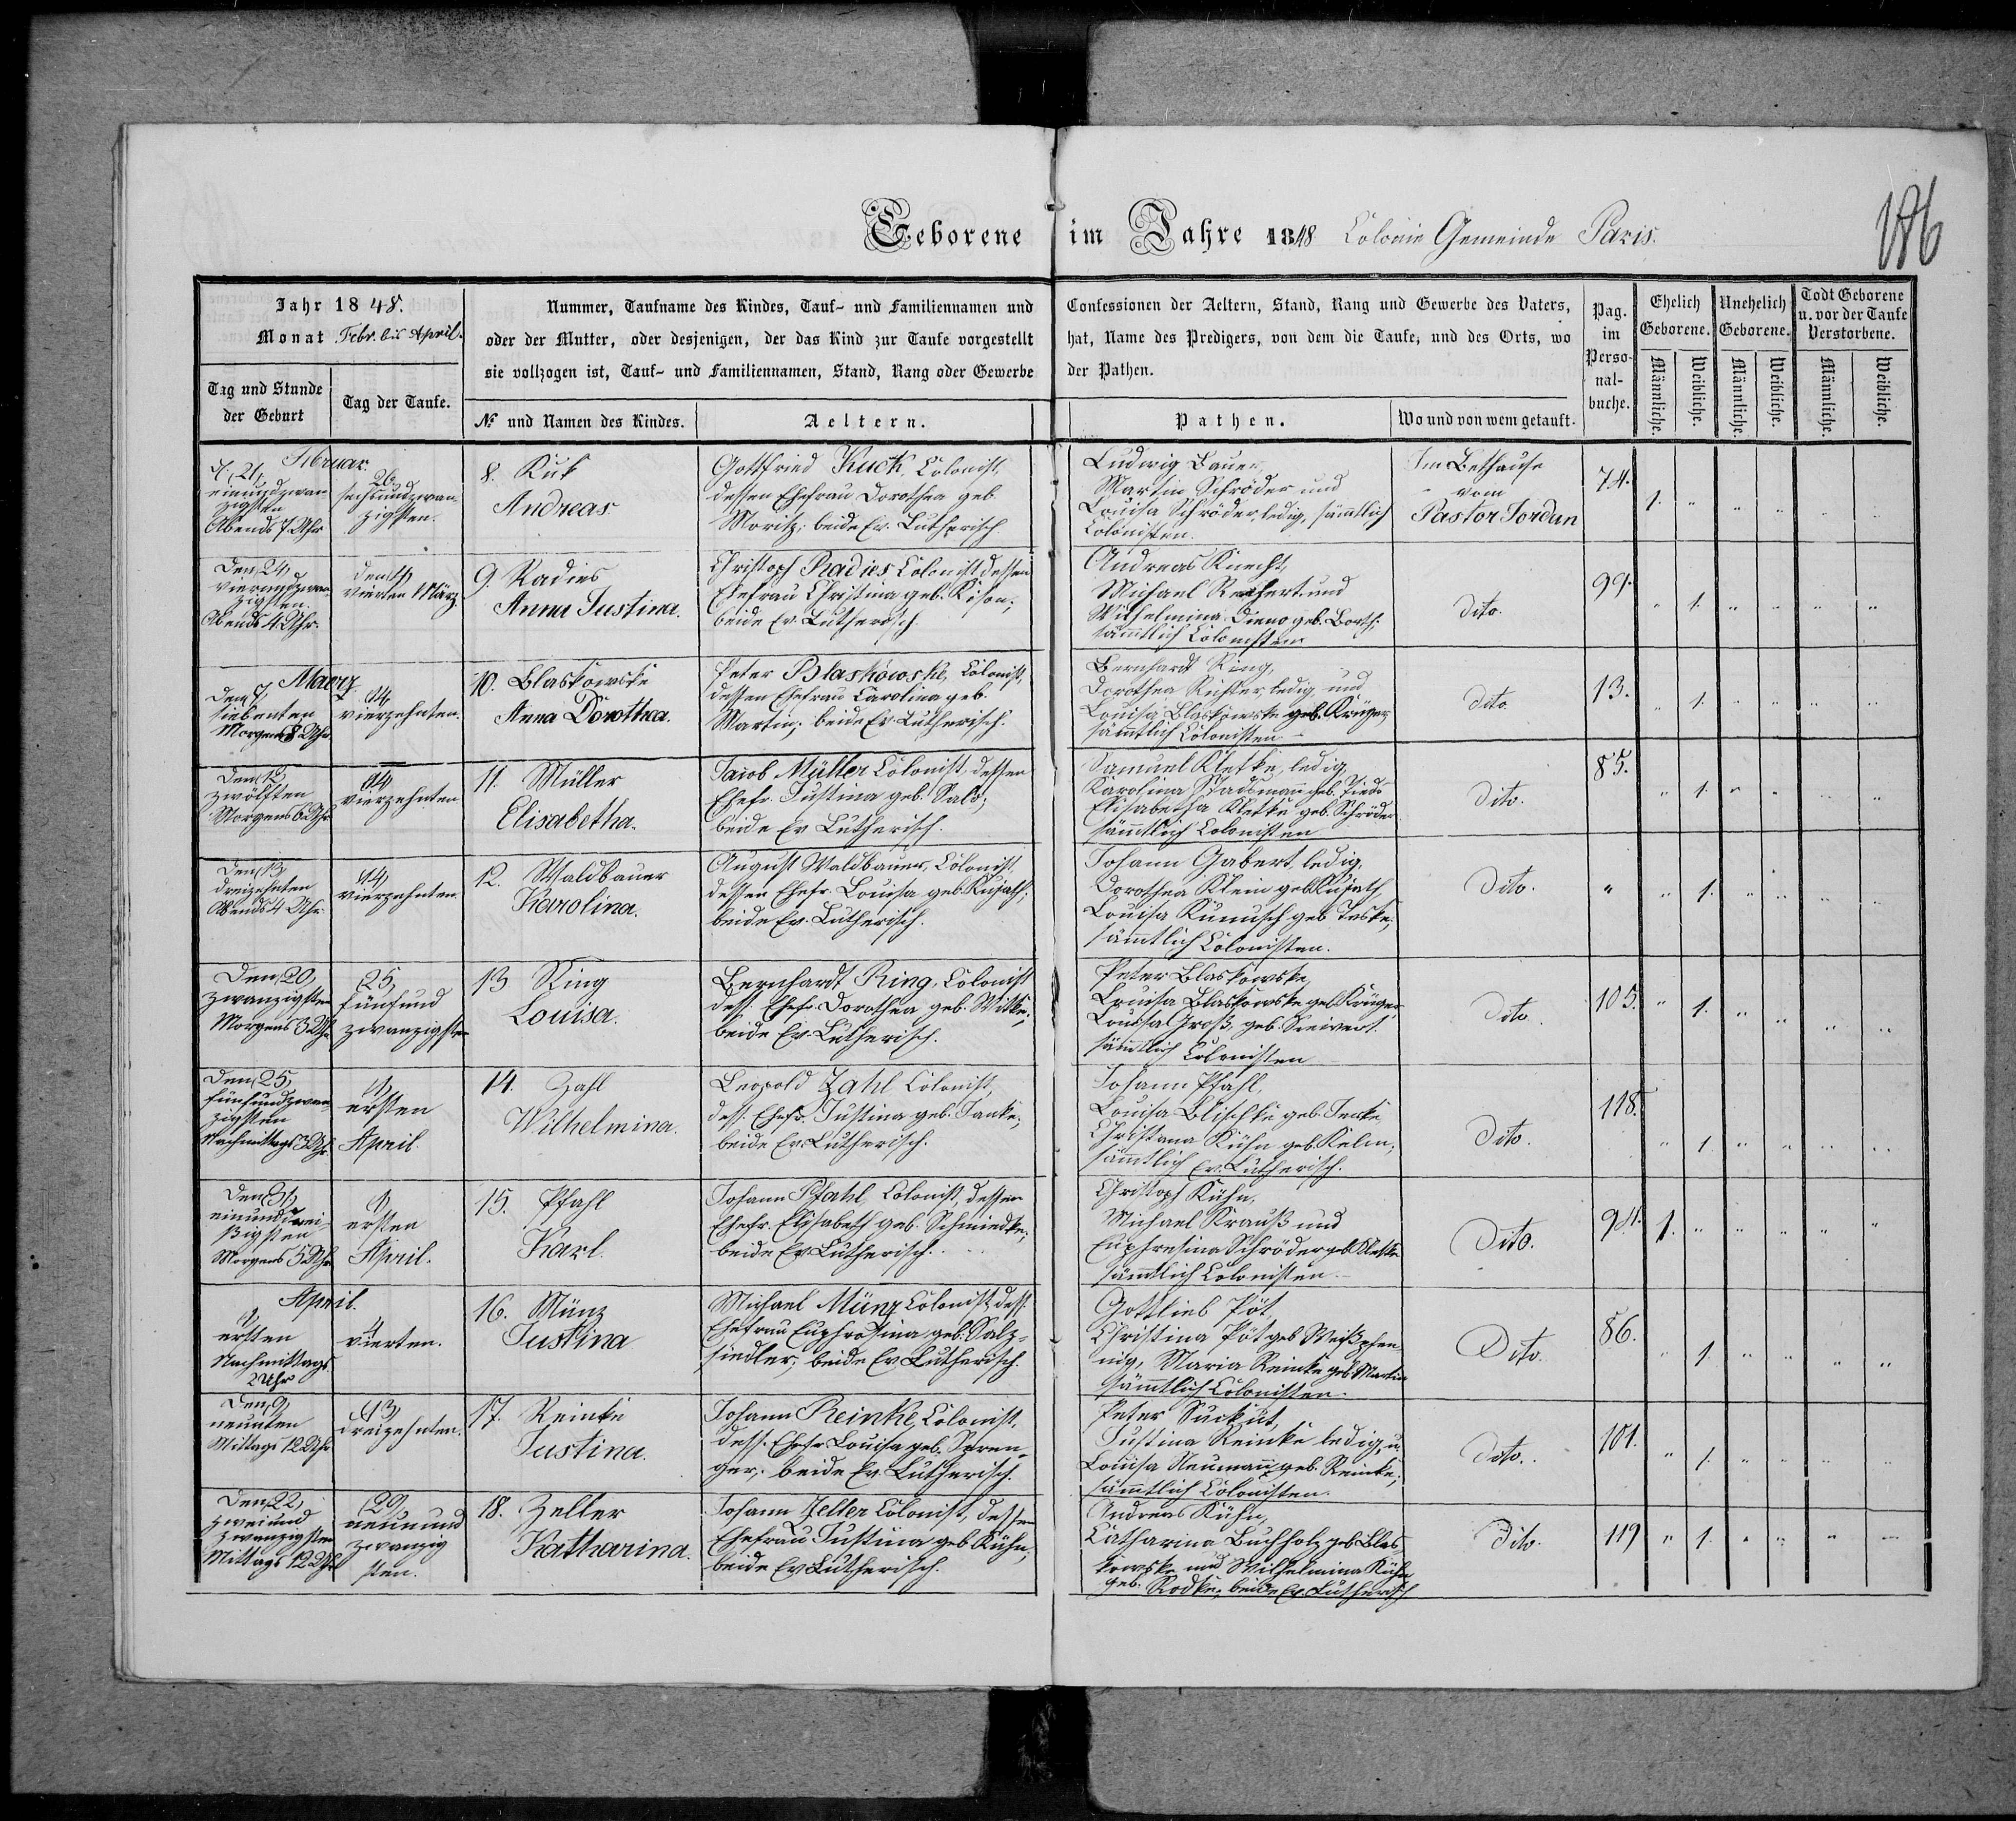 Geborene im Jahre 1848 Colonie Gemeinde Paris.
186
Jahr 1848.
Monat Febr. bis April.
Tag und Stunde
der Geburt
Tag der Taufe.
Nummer, Taufname des Kindes, Tauf- und Familiennamen und
oder der Mutter, oder desjenigen, der das Kind zur Taufe vorgestellt
sie vollzogen ist, Tauf- und Familiennamen, Stand, Rang oder Gewerbe
№ und Namen des Kindes.
Aeltern.
Confessionen der Aeltern, Stand, Rang und Gewerbe des Vaters,
hat, Name des Predigers, von dem die Taufe, und des Orts, wo
der Pathen.
Pathen.
Wo und von wem getauft.
Pag.
im
Perso-
nal-
buche.
Ehelich
Geborene.
Unehelich
Geborene.
Todt Geborene
u. vor der Taufe
Verstorbene.
Männliche.
Weibliche.
Männliche.
Weibliche.
Männliche.
Weibliche.
Februar.
21,
einundzwan
zigsten
Abends 7 Uhr
26,
sechsundzwan-
zigsten.
8. Kuk
Andreas
Gottfried Kuck, Colonist,
dessen Ehefrau Dorothea geb.
Moritz; beide Ev. Lutherisch
Ludwig Bauer,
Martin Schröder und
Louisa Schröder, ledig, sämtlich
Colonisten.
Im Bethause
vom
Pastor Jordan
74.
1. " " " " "
Den 24,
vierundzwan-
zigsten
Abends 4 Uhr.
den 4,
vierten März.
9. Radies
Anna Justina.
Christoph Radies Colonist dessen
Ehefrau Christina geb.
beide Ev. Lutherisch
Andreas Knecht,
Michael und
Wilhelmina geb.
sämmtlich Colonisten
dito.
99.
" 1. " " " "
Maerz
Den 7,
siebenten
Morgens 8 Uhr
14,
vierzehnten.
10. Blaskowske
Anna Dorothea.
Peter Blaskowske, Colonist,
dessen Ehefrau Carolina geb.
Martin; beide Ev. Lutherisch.
Bernhardt Ring,
Dorothea Richter ledig, und
Louisa Blaskowske geb. Krüger
sämmtlich Colonisten
dito.
13.
" 1. " " " "
Den 12,
zwölften
Morgens 6 Uhr
14,
vierzehnten
11. Müller
Elisabetha.
Jacob Müller Colonist, dessen
Ehefr. Justina geb. Salo;
beide Ev. Lutherisch.
Samuel Kletke, ledig,
Karolina geb.
Elisabetha Kletke geb. Schröder
sämmtlich Colonisten
dito.
85.
" 1. " " " "
Den 13,
dreizehnten
Abends 4 Uhr.
14,
vierzehnten.
12. Waldbauer
Karolina.
August Waldbauer, Colonist,
dessen Ehefr. Louisa geb. Kujath;
beide Ev. Lutherisch.
Johann Gabert, ledig,
Dorothea Klein geb. Kujath
Louisa geb. Teske;
sämmtlich Colonisten.
dito.
"
" 1. " " " "
Den 20,
zwanzigsten
Morgens 3 Uhr
25,
fünfund
zwanzigsten
13 Ring
Louisa.
Bernhardt Ring, Colonist
dess. Ehefr. Dorothea geb.
beide Ev. Lutherisch.
Peter Blaskowske,
Louisa Blaskowske geb. Krüger
Louisa Groß, geb.
sämmtlich Colonisten
dito.
105.
" 1. " " " "
Den 25,
fünfundzwan-
zigsten
Nachmittags 3 Uhr.
1,
ersten
April
14. Zahl
Wilhelmina.
Leopold Zahl Colonist,
dess. Ehefr. Justina geb. Janke;
beide Ev. Lutherisch.
Johann Pfahl,
Louisa Blischke geb.
Kühn geb. Kelm;
sämmtlich Ev. Lutherisch.
dito.
118.
" 1. " " " "
Den 31,
einunddrei-
ßigsten
Morgens 5 Uhr
1,
ersten
April.
15. Pfahl
Karl.
Johann Pfahl, Colonist, dessen
Ehefr. Elisabeth geb. Schmiedke;
beide Ev. Lutherisch.
Christoph Kühn,
Michael Krauß und
Euphresina Schröder geb. Kletke
sämmtlich Colonisten.
dito.
94.
1. " " " " "
April.
1,
ersten
Nachmittags
2 Uhr
4,
vierten.
16. Münz
Justina
Michael Münz Colonist, dess.
Ehefrau Euphrosina, geb. Salz-
siedler; beide Ev. Lutherisch.
Gottlieb Pöt,
Christina Pöt geb. Weißpfen-
nig, Maria Reinke geb. Martin
sämmtlich Colonisten.
dito.
86.
" 1. " " " "
Den 9,
neunten
Mittags 12 Uhr
13,
dreizehnten.
17. Reinke
Justina.
Johann Reinke, Colonist,
dess. Ehefr. Louisa geb. Spren-
ger; beide Ev. Lutherisch.
Peter
Justina Reinke ledig, u.
Louisa Neumann geb. Reinke;
sämmtlich Colonisten.
dito.
101.
" 1. " " " "
Den 22,
zweiund
zwanzigsten
Mittags 12 Uhr
29,
neunund
zwanzig
sten.
18. Zeller
Katharina.
Johann Zeller Colonist, dessen
Ehefrau Justina geb. Kühn;
beide Ev. Lutherisch.
Andreas Kühn,
Catharina Buchholz geb. Blas-
kowske und Wilhelmina Kühn
geb. Radke; beide Ev. Lutherisch
dito.
119
" 1. " " " "